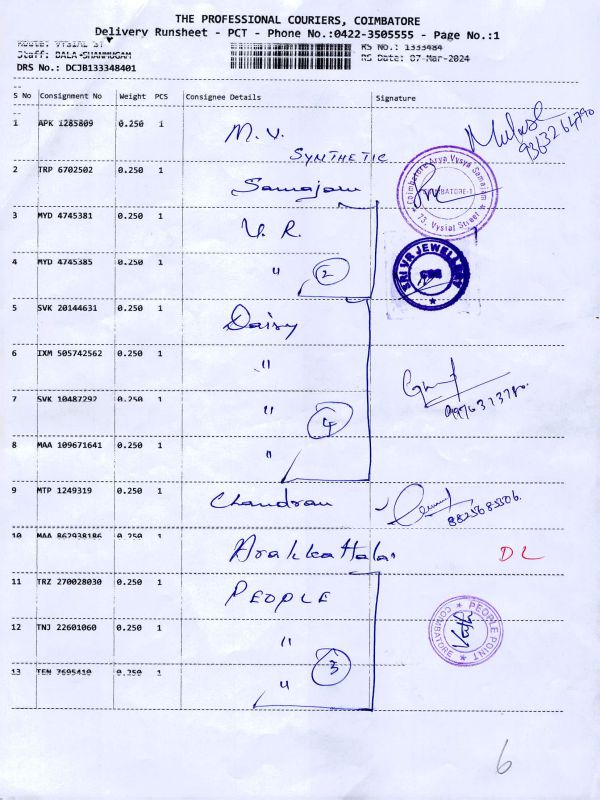 THE PROFESSIONAL COURIERS, COIMBATORE
Delivery Runsheet - PCT - Phone No.:0422-3505555 - Page No.:1
Route: VYSIAL ST
Staff: BALA SHANMUGAM
RS No.: 1333484
DRS No.: DCJB133348401
RS Date: 07-Mar-2024
S No Consignment No Weight PCS Consignee Details Signature
1 APK 1285809 0.250 1 M. V. SYNTHETIC
2 TRP 6702502 0.250 1 Samajam
Coimbatore Arya Vysya Samajam
COIMBATORE-1
* 73, Vysial Street *
3 MYD 4745381 0.250 1 V. R.
4 MYD 4745385 0.250 1 " 2
SRI VR JEWELLERY
CBE
5 SVK 20144631 0.250 1 Daisy
6 IXM 505742562 0.250 1 "
7 SVK 10487292 0.250 1 " 4
8 MAA 109671641 0.250 1 "
9 MTP 1249319 0.250 1 Chandran
10 MAA 862938186 0.250 1 DL
11 TRZ 270028030 0.250 1 PEOPLE
12 TNJ 22601060 0.250 1 "
PEOPLE POINT
COIMBATORE
13 TEN 7695410 0.250 1 " 3
6